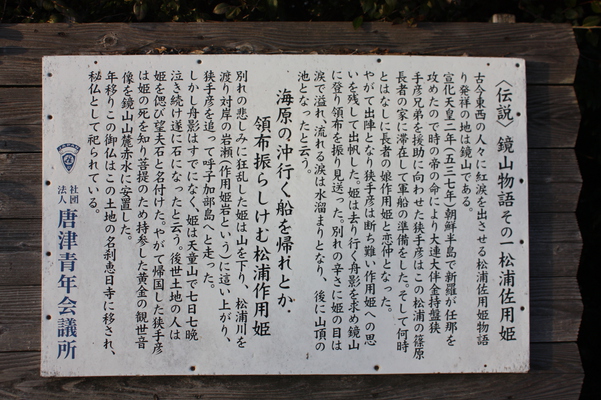 〈伝説〉鏡山物語その一松浦佐用姫
古今東西の人々に紅涙を出させる松浦佐用姫物語
り発祥の地は鏡山である。
宣化天皇二年(五三七年)朝鮮半島で新羅が任那を
攻めたので時の帝の命により大連大伴金持盤狭
手彦兄弟を援助に向わせた狭手彦はこの松浦の篠原
長者の家に滞在して軍船の準備をした。そして何時
とはなしに長者の娘作用姫と恋仲となった。
やがて出陣となり狭手彦は断ち難い作用姫への思
いを残して出帆した。姫は去り行く舟影を求め鏡山
に登り領布を振り見送った。別れの辛さに姫の目は
涙で溢れ、流れる涙は水溜まりとなり、後に山頂の
池となったと云う。
海原の沖行く船を帰れとか
領布振らしけむ松浦作用姫
別れの悲しみに狂乱した姫は山を下り、松浦川を
渡り対岸の岩瀬(作用姫岩という)に這い上がり、
狭手彦を追って呼子加部島へと走った。
しかし舟影はすでになく、姫は天童山で七日七晩
泣き続け遂に石になったと云う。後世土地の人は
姫を偲び望夫石と名付けた。やがて帰国した狭手彦
は姫の死を知り菩提のため持参した黄金の観世音
像を鏡山山麓赤水に安置した。
年移りこの御仏はこの土地の名刹恵日寺に移され、
秘仏として祀られている。
社団
法人 唐津青年会議所